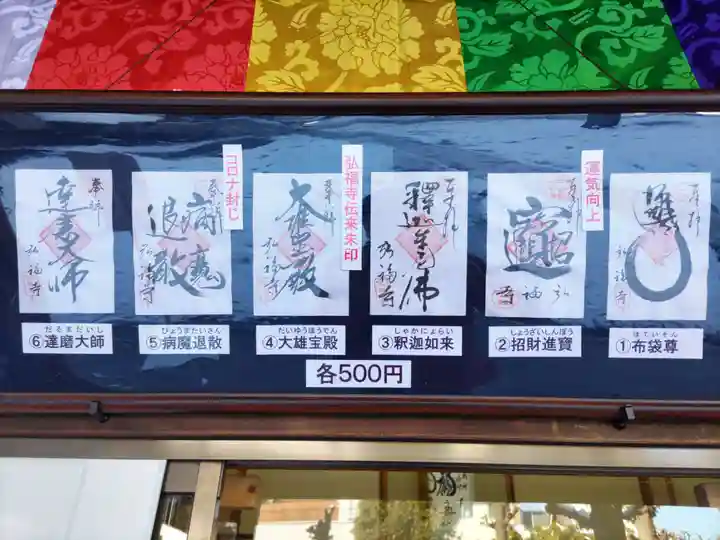 コロナ封じ
弘福寺伝来朱印
運気向上
奉拝
達磨大師
弘福寺
病魔
退散
弘福寺
大雄宝殿
弘福寺
釋迦牟尼佛
弘福寺
弘福寺
だるまだいし
⑥達磨大師
びょうまたいさん
⑤病魔退散
だいゆうほうでん
④大雄宝殿
しゃかにょらい
③釈迦如来
しょうざいしんぽう
②招財進寶
ほていそん
①布袋尊
各500円